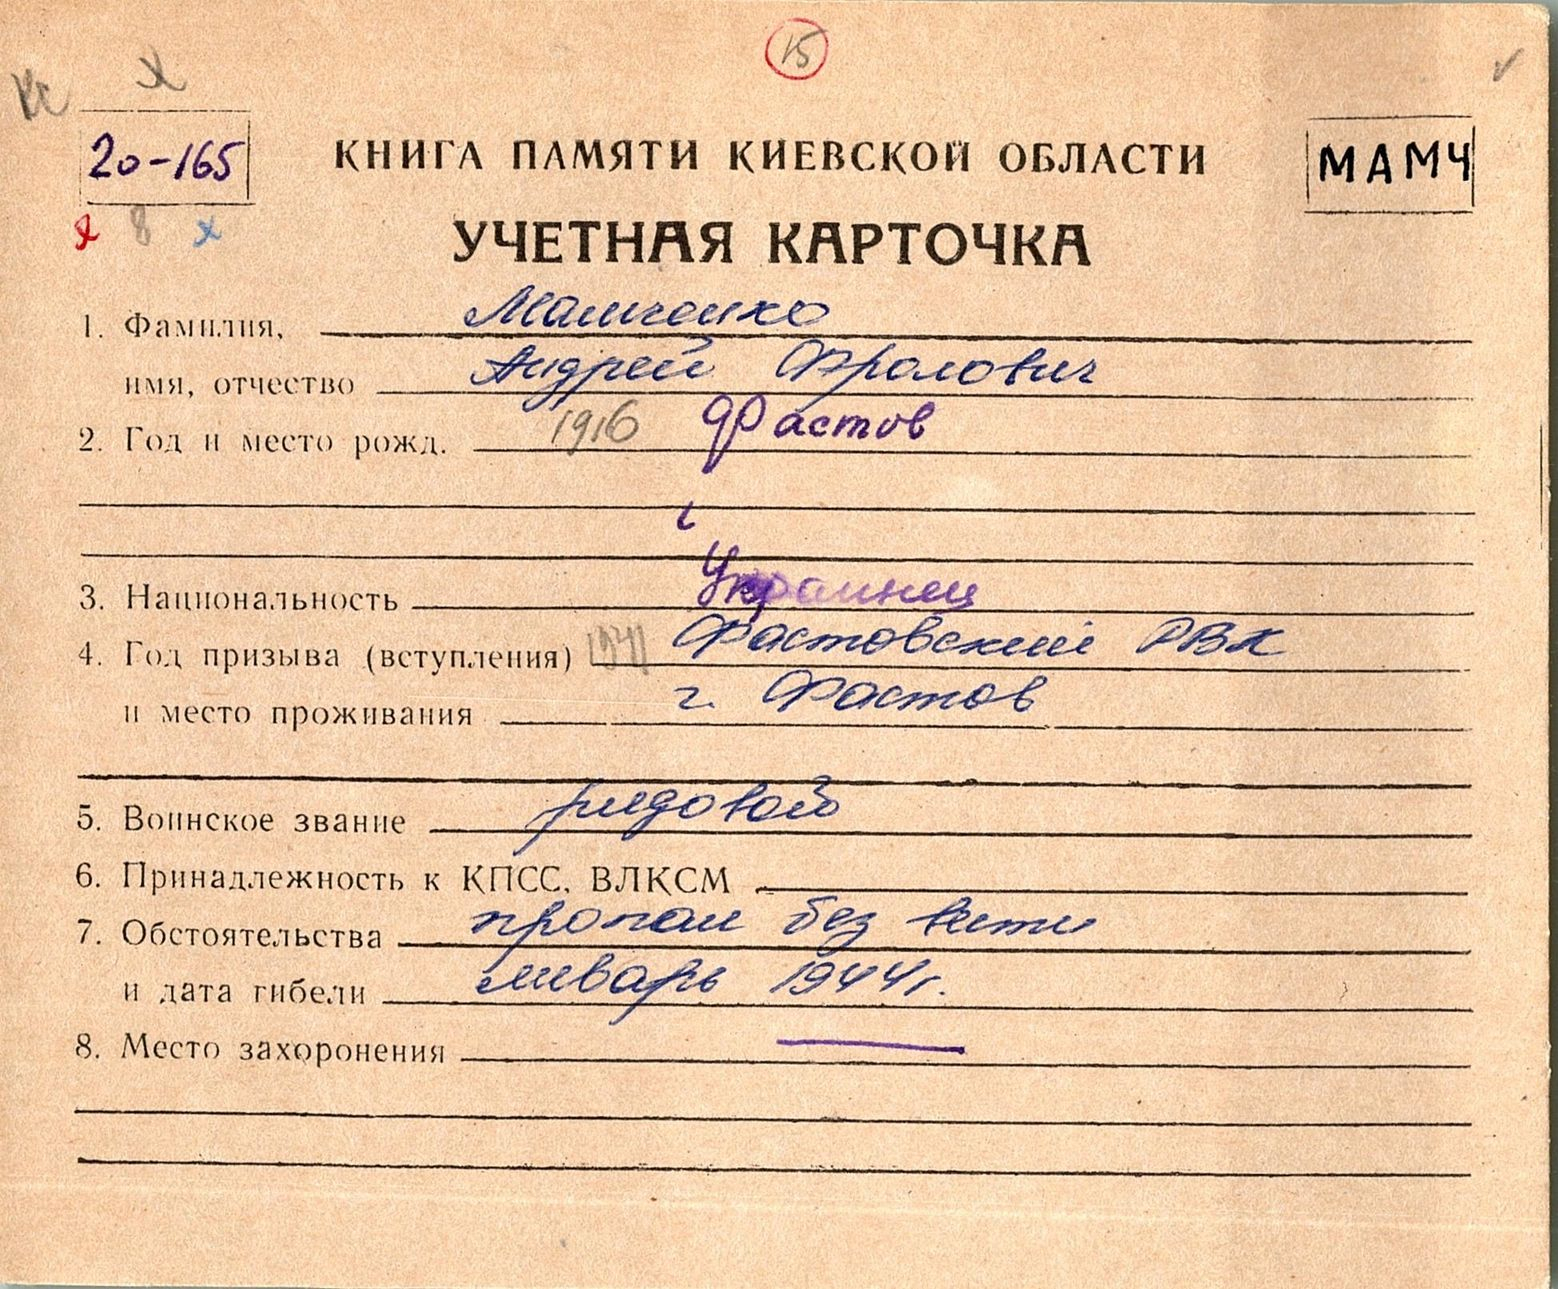 15
Кс х
20-165 КНИГА ПАМЯТИ КИЕВСКОЙ ОБЛАСТИ МАМЧ
х 8 х
УЧЕТНАЯ КАРТОЧКА
1. Фамилия, Мамченко
имя, отчество Андрей Фролович
2. Год и место рожд. 1916 Фастов
3. Национальность Украинец
4. Год призыва (вступления) 1941 Фастовский РВК
и место проживания г. Фастов
5. Воинское звание рядовой
6. Принадлежность к КПСС, ВЛКСМ
7. Обстоятельства пропал без вести
и дата гибели январь 1944г.
8. Место захоронения —